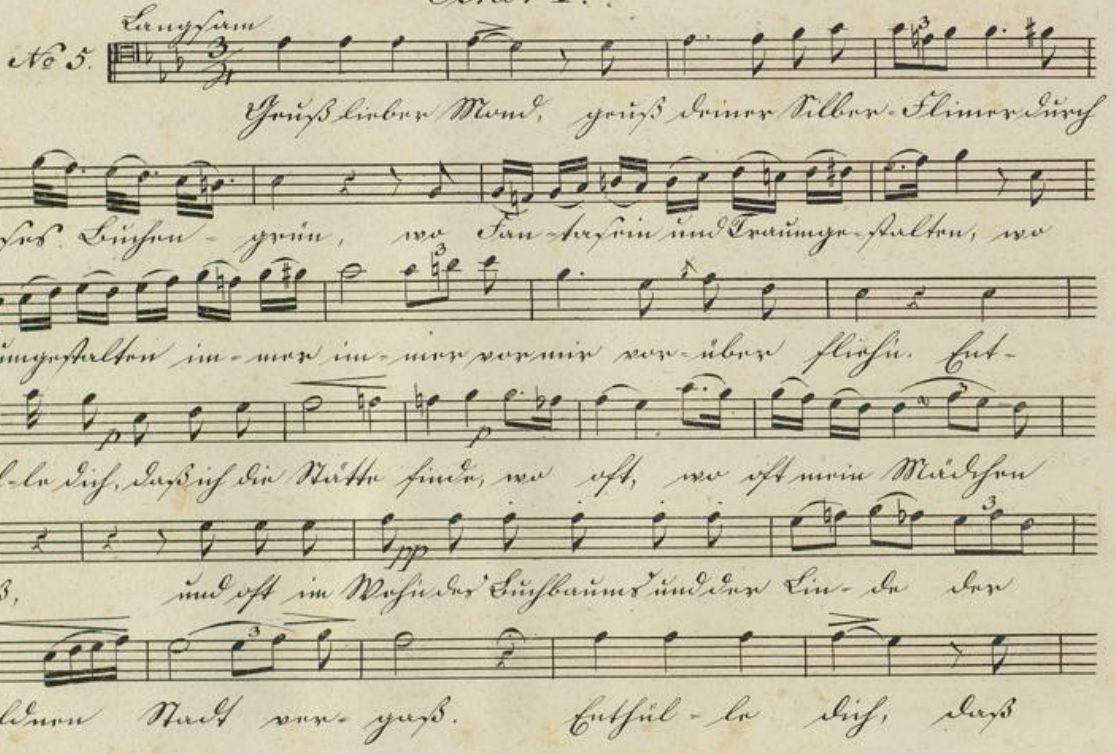 Tenor I.
Langsam
No 5.
Geuß lieber Mond, geuß deiner Silber-Flimer durch
ses Buchen-grün, wo Fan-tasein und Traumge-stalten, wo
umgestalten im-mer im-mer vor mir vor-über fliehn. Ent-
l-le dich, daß ich die Stätte finde, wo oft, wo oft mein Mädchen
p p
ß, und oft im Wehn des Buchbaums und der Lin-de der
pp
ldnen Stadt ver-gaß. Enthül-le dich, daß